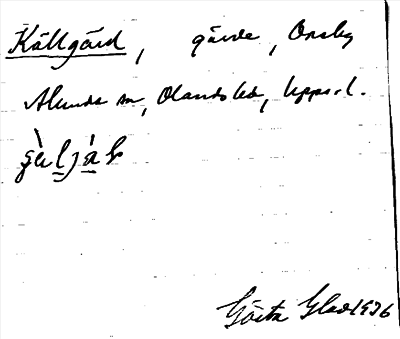 Källgärd, gärde, Onsby
Alunda sn, Olands hd, Upps. l.
Gösta Glad 1936